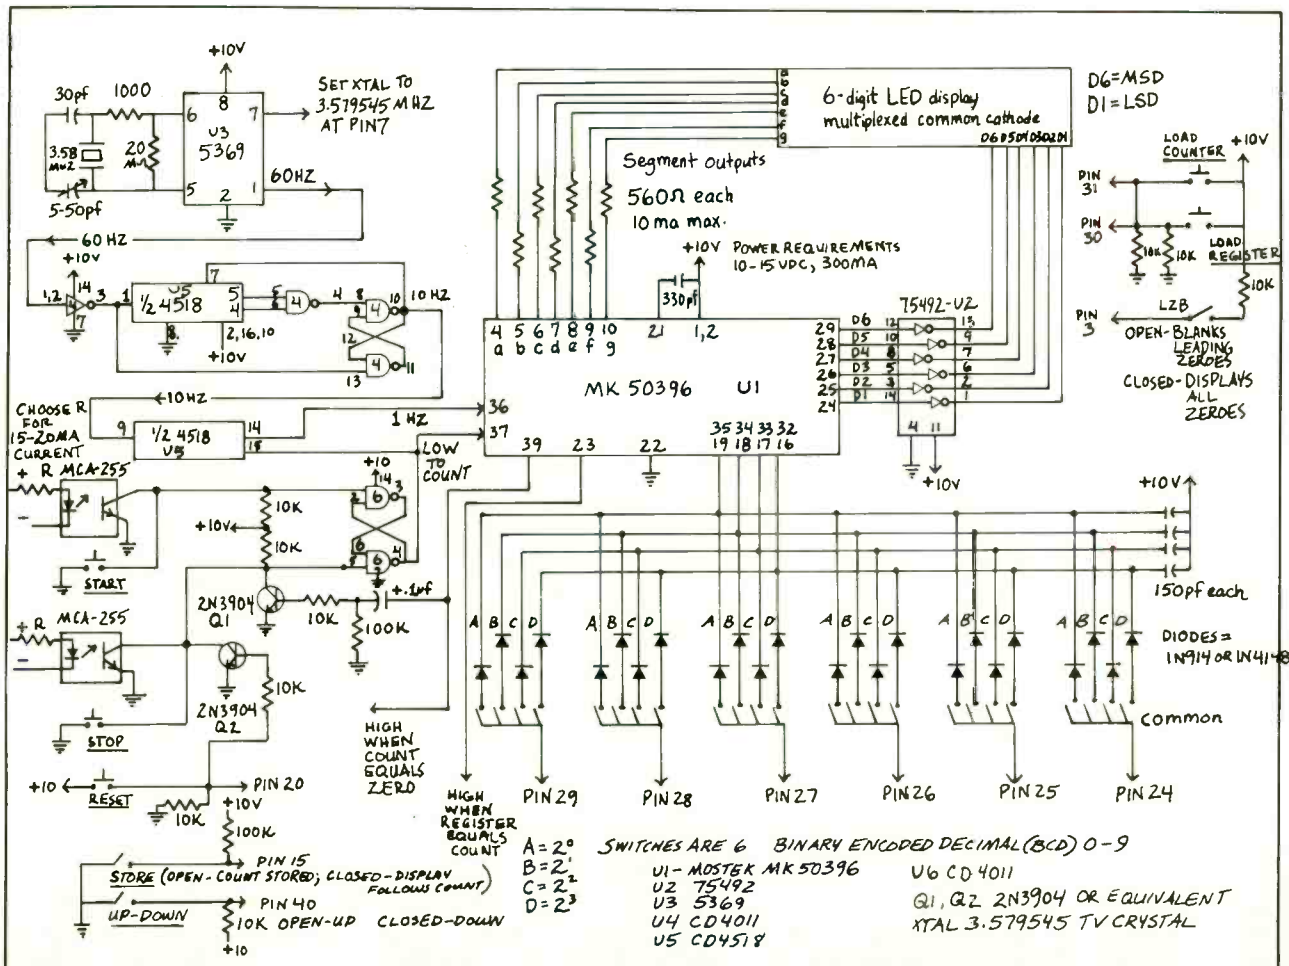 +10V
30pf
1000
8
6
7
U3
5369
3.58
MHZ
20
M~
5
1
2
5-50pf
SET XTAL TO
3.579545 MHZ
AT PIN 7
60HZ
60 HZ
+10V
14
1,2
4
3
7
1
U5
1/2 4518
5
4
7
8
2,16,10
+10V
5
6
4
4
8
9
4
10
10 HZ
12
4
11
13
10HZ
CHOOSE R
FOR
15-20MA
CURRENT
9
1/2 4518
U5
14
15
1 HZ
LOW
TO
COUNT
+ R MCA-255
-
START
10K
+10V
10K
+10
14
6
3
2
6
5
6
4
7
2N3904
Q1
10K
+.1uf
100K
+ R MCA-255
-
2N3904
Q2
10K
STOP
+10
RESET
PIN 20
10K
+10V
100K
PIN 15
STORE (OPEN-COUNT STORED; CLOSED-DISPLAY
FOLLOWS COUNT)
PIN 40
UP-DOWN
10K OPEN-UP CLOSED-DOWN
+10
HIGH
WHEN
COUNT
EQUALS
ZERO
HIGH
WHEN
REGISTER
EQUALS
COUNT
a
b
c
d
e
f
g
6-digit LED display
multiplexed common cathode
D6 D5 D4 D3 D2 D1
D6=MSD
D1=LSD
Segment outputs
560Ω each
10 ma max.
+10V
POWER REQUIREMENTS
10-15 VDC, 300MA
330pf
4 5 6 7 8 9 10 21 1,2
a b c d e f g
MK 50396 U1
36
37
39 23 22
35 34 33 32
19 18 17 16
29
28
27
26
25
24
D6 12
D5 10
D4 8
D3 5
D2 3
D1 14
75492-U2
13
9
7
6
2
1
4 11
+10V
LOAD
COUNTER
+10V
PIN
31
PIN
30
10K
10K
LOAD
REGISTER
10K
PIN
3
LZB
OPEN-BLANKS
LEADING
ZEROES
CLOSED-DISPLAYS
ALL
ZEROES
+10V
150pf each
A B C D
A B C D
A B C D
A B C D
A B C D
A B C D
DIODES =
1N914 OR 1N4148
common
PIN 29
PIN 28
PIN 27
PIN 26
PIN 25
PIN 24
A = 2⁰
B = 2¹
C = 2²
D = 2³
SWITCHES ARE 6 BINARY ENCODED DECIMAL (BCD) 0-9
U1- MOSTEK MK 50396
U2 75492
U3 5369
U4 CD4011
U5 CD4518
U6 CD 4011
Q1, Q2 2N3904 OR EQUIVALENT
XTAL 3.579545 TV CRYSTAL